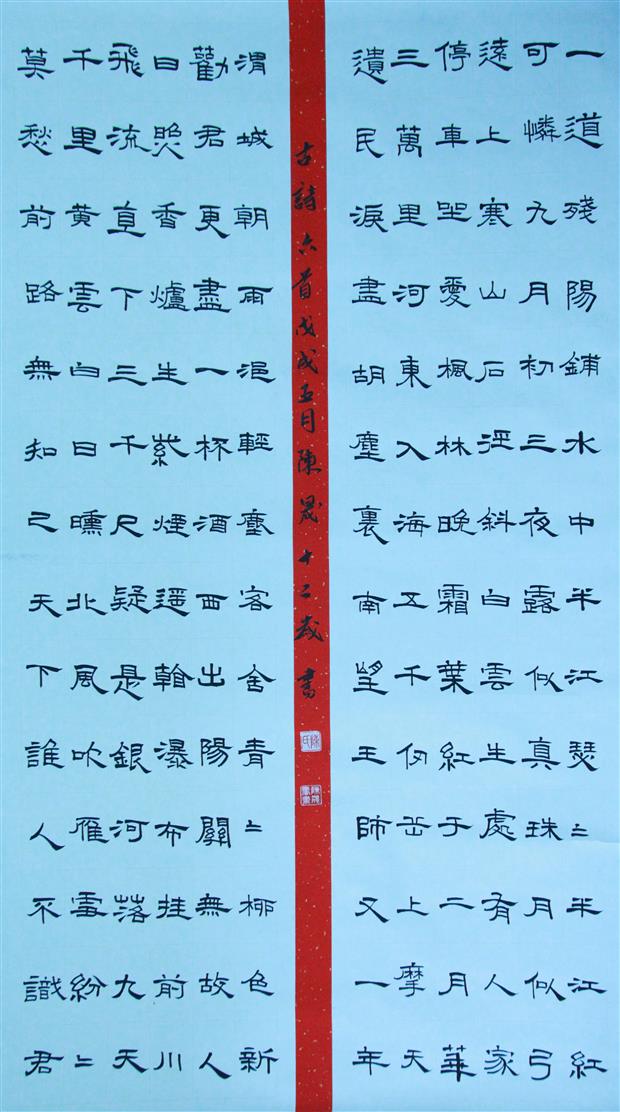 一道殘陽鋪水中半江瑟〻半江紅
可憐九月初三夜露似真珠月似弓
遠上寒山石徑斜白雲生處有人家
停車坐愛楓林晚霜葉紅于二月華
三萬里河東入海五千仞岳上摩天
遺民淚盡胡塵裏南望王師又一年
古詩六首戊戌五月陳晟十二歲書
渭城朝雨浥輕塵客舍青〻柳色新
勸君更盡一杯酒西出陽關無故人
日照香爐生紫煙遥看瀑布挂前川
飛流直下三千尺疑是銀河落九天
千里黄雲白日曛北風吹雁雪紛〻
莫愁前路無知己天下誰人不識君